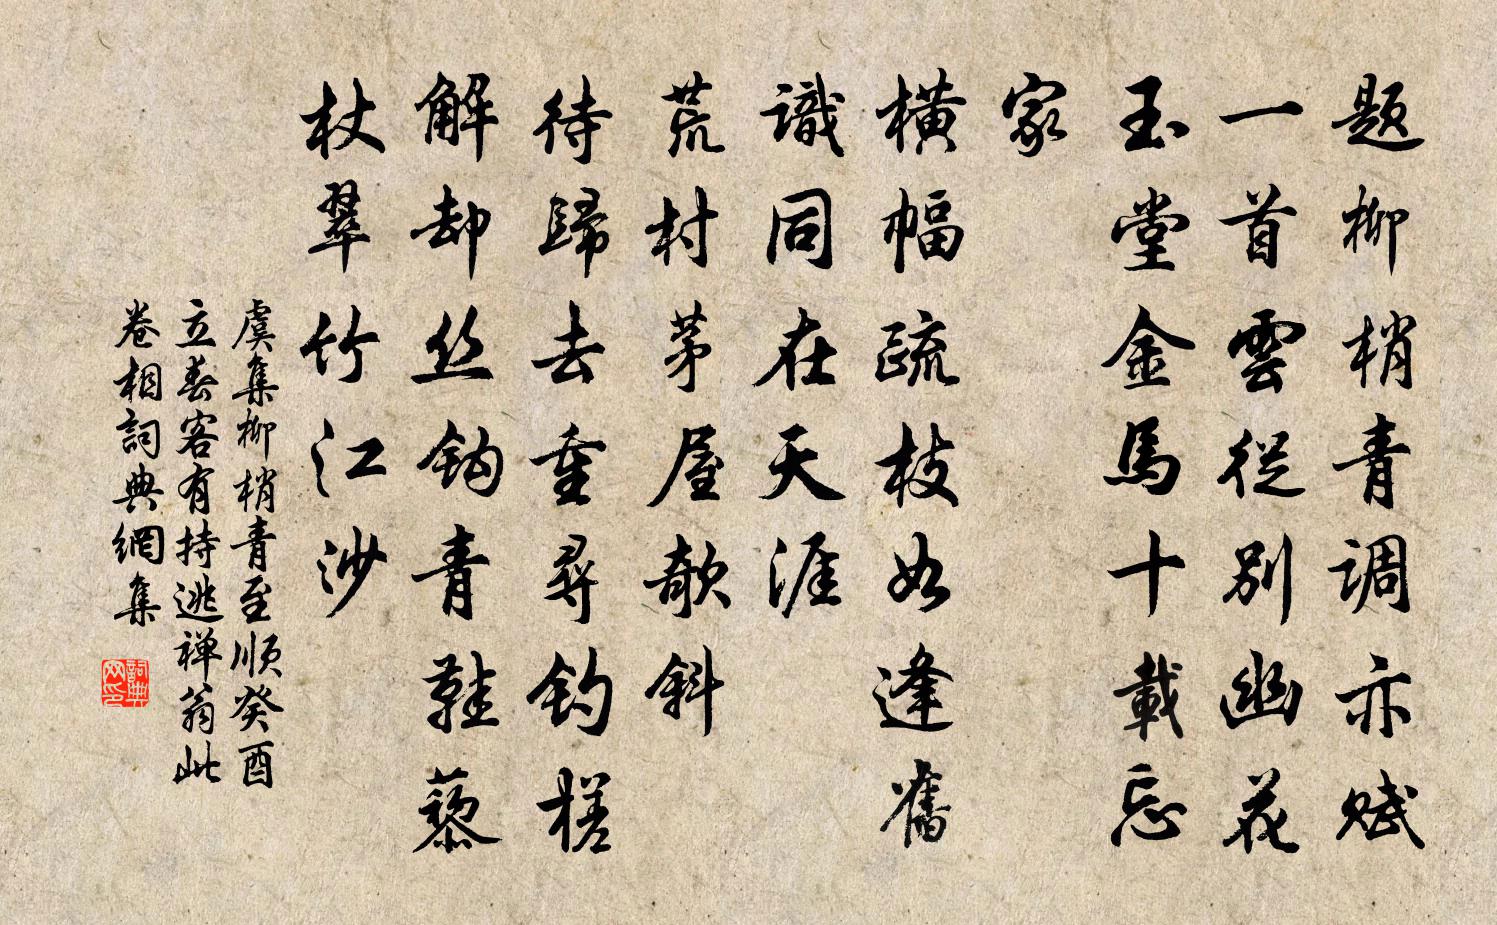 题柳梢青调亦赋
一首雲從别幽花
玉堂金馬十載忘
家
横幅疏枝如逢舊
識同在天涯
荒村茅屋欹斜
待歸去重尋釣槎
解却丝鈎青鞋藜
杖翠竹江沙
虞集柳梢青至顺癸酉
立春客有持逃禅翁此
卷相詞典網集
詞典网印